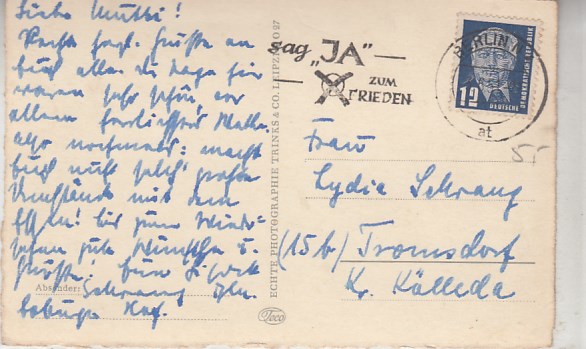 Liebe Mutti!
Recht herzl. Grüße an
Euch alle. Die Tage hier
waren sehr schön, vor
allem herrliches Wetter.
Also nochmals: macht
Euch nicht solch' große
Umstände mit dem
Essen! Bis zum Wieder-
sehen gute Wünsche u.
Grüße!
Absender:
ECHTE PHOTOGRAPHIE TRINKS & CO. LEIPZIG O 27
Teco
sag „JA"
ZUM
FRIEDEN
BERLIN
at
12
DEUTSCHE
DEMOKRATISCHE REPUBLIK
5,-
Frau
Lydia Schrang
(15b) Tromsdorf
Kr. Kölleda